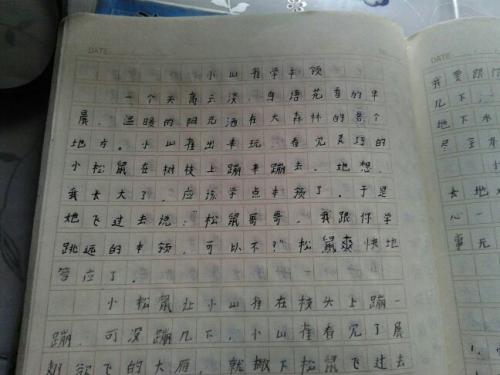 DATE
小山雀学本领
一个天高云淡，鸟语花香的早
晨，温暖的阳光洒在大森林的各个
地方。小山雀出来玩，看见灵巧的
小松鼠在树枝上蹦来蹦去，她想，
我长大了，应该学点本领了，于是
她飞过去说：松鼠哥哥，我跟你学
跳远的本领，可以不？松鼠爽快地
答应了。
小松鼠让小山雀在枝头上蹦一
蹦，可没蹦几下，小山雀看见了展
翅欲飞的大雁，就撇下松鼠飞过去
我要跟
几下
地下
去地
心一